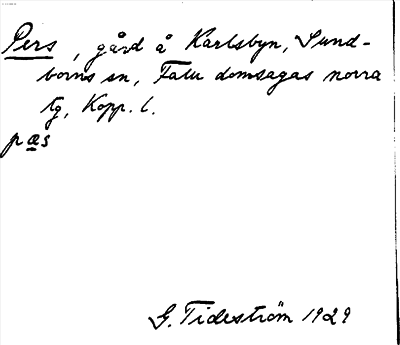 Pers, gård å Karlsbyn, Sund-
borns sn, Falu domsagas norra
tg, Kopp. l.
pæs
G. Tideström 1929